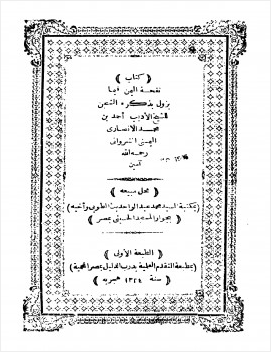 ﴿ كتاب ﴾
نفحة اليمن فيما
يزول بذكره الشجن
للشيخ الأديب أحمد بن
محمد الأنصارى
اليمنى الشروانى
رحمه الله
آمين
﴿ محل مبيعه ﴾
﴿ بمكتبة السيد محمد عبد الواحد بك الطوبى وأخيه ﴾
﴿ بجوار المسجد الحسينى بمصر ﴾
﴿ الطبعة الأولى ﴾
﴿ بمطبعة التقدم العلمية بدرب الدليل بمصر المحمية ﴾
﴿ سنة ١٣٢٤ هجريه ﴾